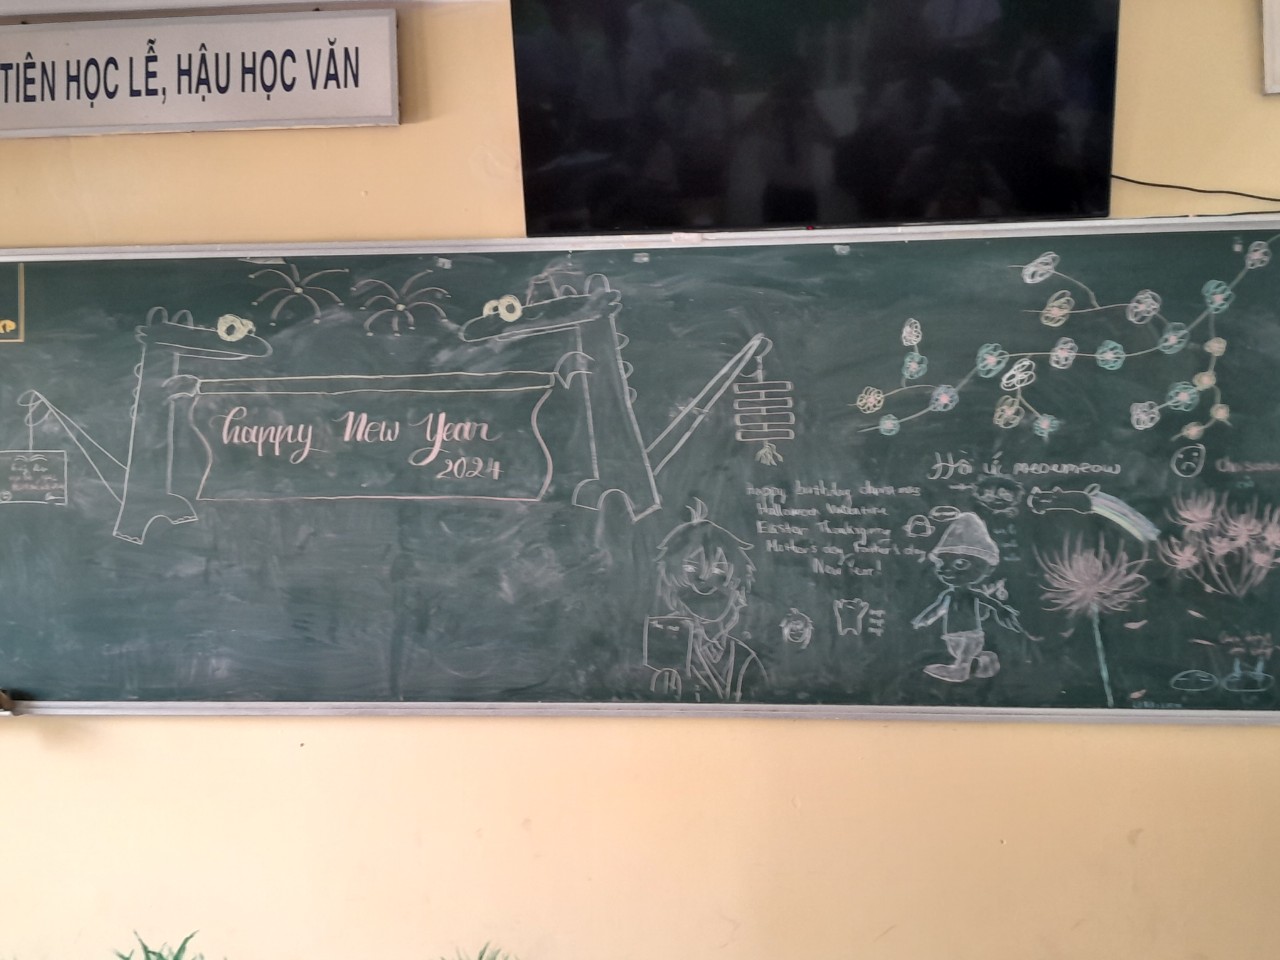 TIÊN HỌC LỄ, HẬU HỌC VĂN
happy New Year
2024
Hồ Ly meowmeow
Happy birthday christmas
Halloween Valentine
Easter Thanksgiving
Mother's day Father's day
New Year!